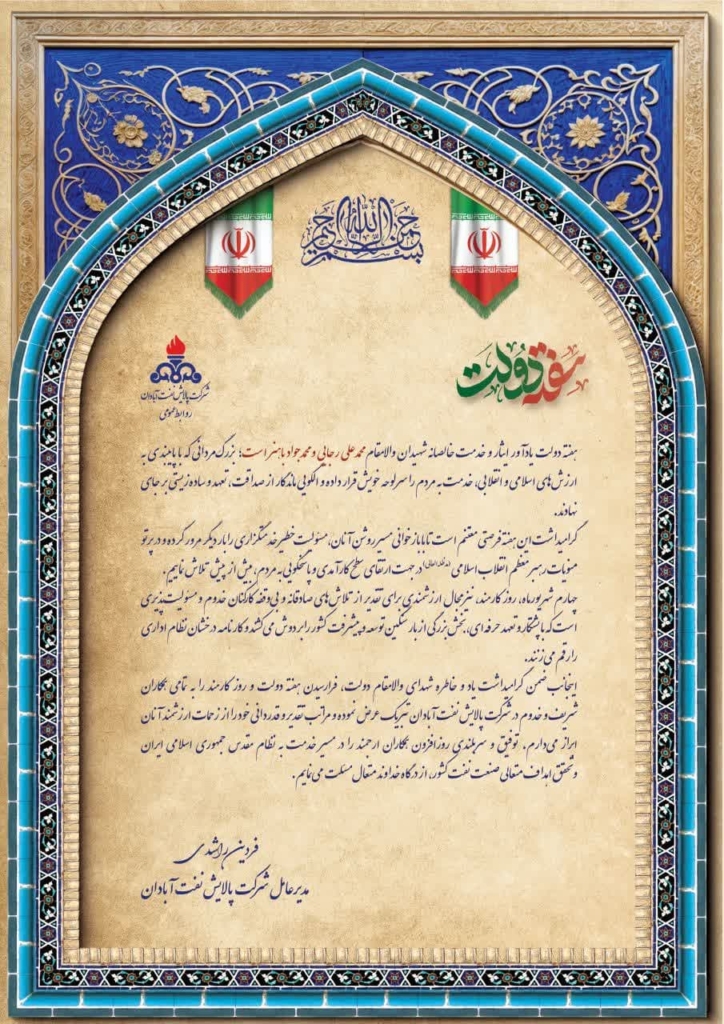 بسم الله الرحمن الرحیم
هفته دولت
شرکت پالایش نفت آبادان
روابط عمومی
هفته دولت یادآور ایثار و خدمت خالصانه شهیدان والامقام محمدعلی رجایی و محمدجواد باهنر است؛ بزرگ مردانی که با پایبندی به
ارزش‌های اسلامی و انقلابی، خدمت به مردم را سرلوحه خویش قرار داده و الگویی ماندگار از صداقت، تعهد و ساده زیستی بر جای
نهادند.
گرامیداشت این هفته فرصتی مغتنم است تا با بازخوانی مسیر روشن آنان، مسئولیت خطیر خدمتگزاری را بار دیگر مرور کرده و در پرتو
منویات رهبر معظم انقلاب اسلامی (مدظله العالی) در جهت ارتقای سطح کارآمدی و پاسخگویی به مردم، بیش از پیش تلاش نماییم.
چهارم شهریورماه، روز کارمند، نیز مجال ارزشمندی برای تقدیر از تلاش‌های صادقانه و بی‌وقفه کارکنان خدوم و مسئولیت پذیری
است که با پشتکار و تعهد حرفه‌ای، بخش بزرگی از بار سنگین توسعه و پیشرفت کشور را بر دوش می‌کشند و کارنامه درخشان نظام اداری
را رقم می‌زنند.
اینجانب ضمن گرامیداشت یاد و خاطره شهدای والامقام دولت، فرارسیدن هفته دولت و روز کارمند را به تمامی همکاران
شریف و خدوم در شرکت پالایش نفت آبادان تبریک عرض نموده و مراتب تقدیر و قدردانی خود را از زحمات ارزشمند آنان
ابراز می‌دارم. توفیق و سربلندی روزافزون همکاران ارجمند را در مسیر خدمت به نظام مقدس جمهوری اسلامی ایران
و تحقق اهداف متعالی صنعت نفت کشور، از درگاه خداوند متعال مسئلت می‌نمایم.
فردین راشدی
مدیرعامل شرکت پالایش نفت آبادان